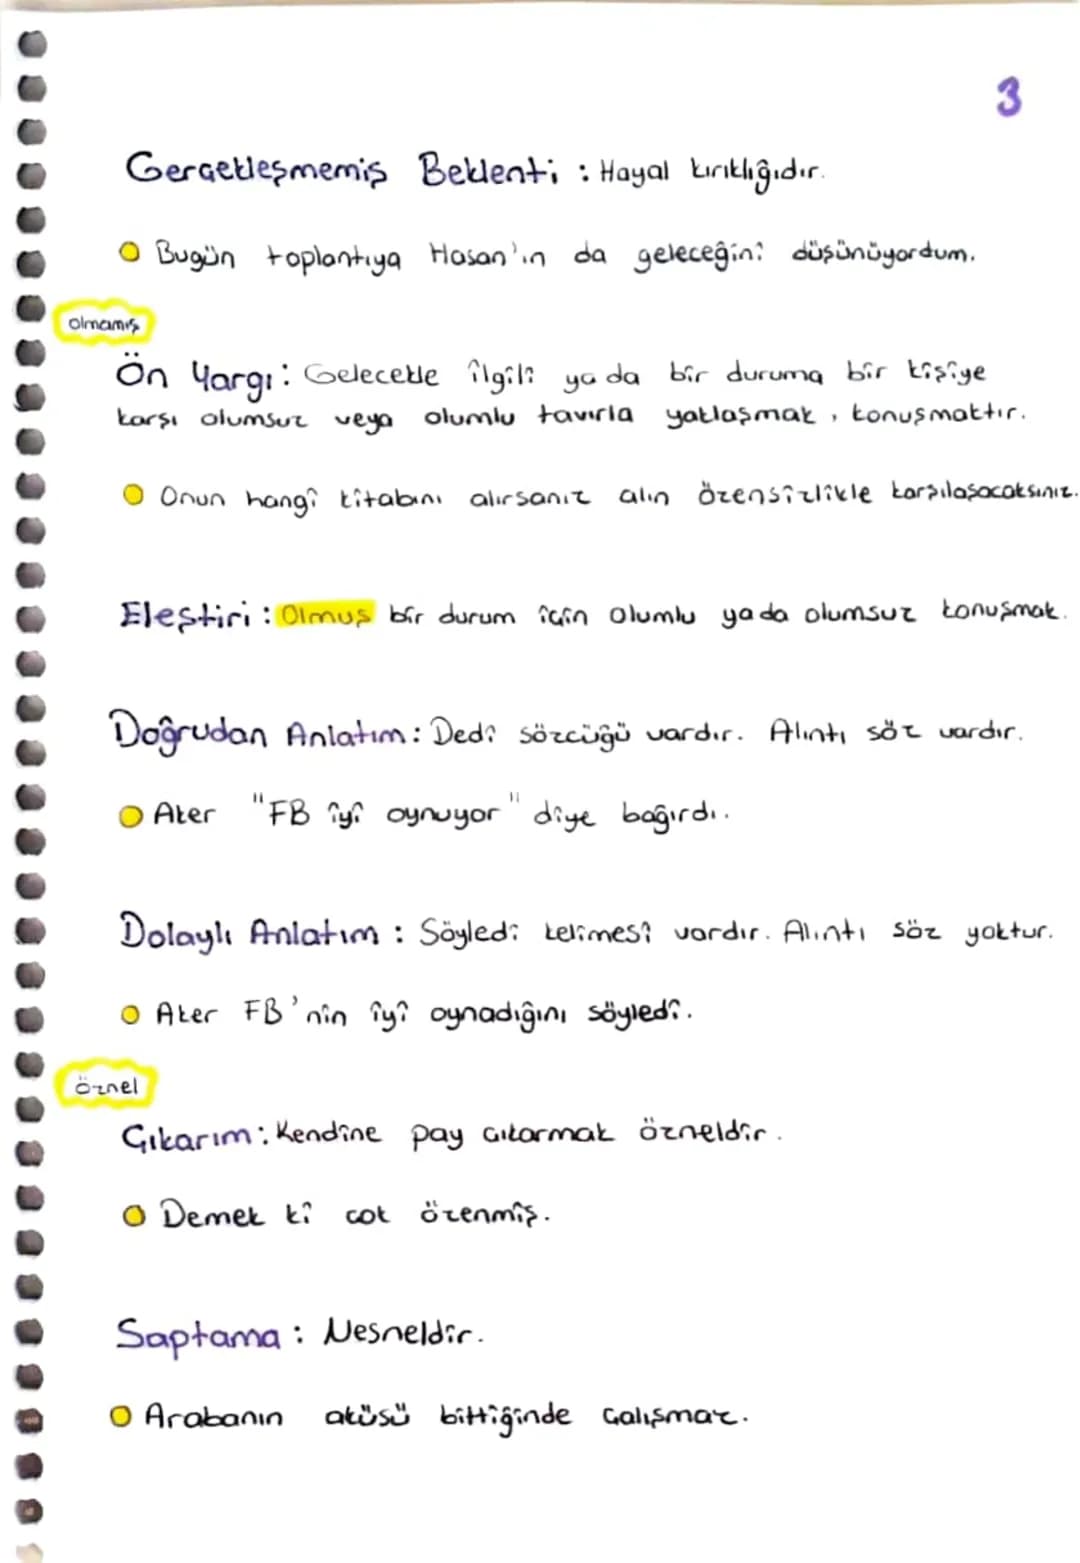 3
Gerçekleşmemiş Beklenti : Hayal kırıklığıdır.
Bugün toplantıya Hasan'ın da geleceğini düşünüyordum.
olmamış
Ön Yargı : Gelecekle ilgili ya da bir duruma bir kişiye
karşı olumsuz veya olumlu tavırla yaklaşmak , konuşmaktır.
Onun hangi kitabını alırsanız alın özensizlikle karşılaşacaksınız.
Eleştiri : Olmuş bir durum için olumlu ya da olumsuz konuşmak.
Doğrudan Anlatım : Dedi sözcüğü vardır. Alıntı söz vardır.
Aker "FB iyi oynuyor" diye bağırdı.
Dolaylı Anlatım : Söyledi kelimesi vardır. Alıntı söz yoktur.
Aker FB'nin iyi oynadığını söyledi.
öznel
Çıkarım : Kendine pay çıkarmak özneldir.
Demek ki çok özenmiş.
Saptama : Nesneldir.
Arabanın aküsü bittiğinde çalışmaz.